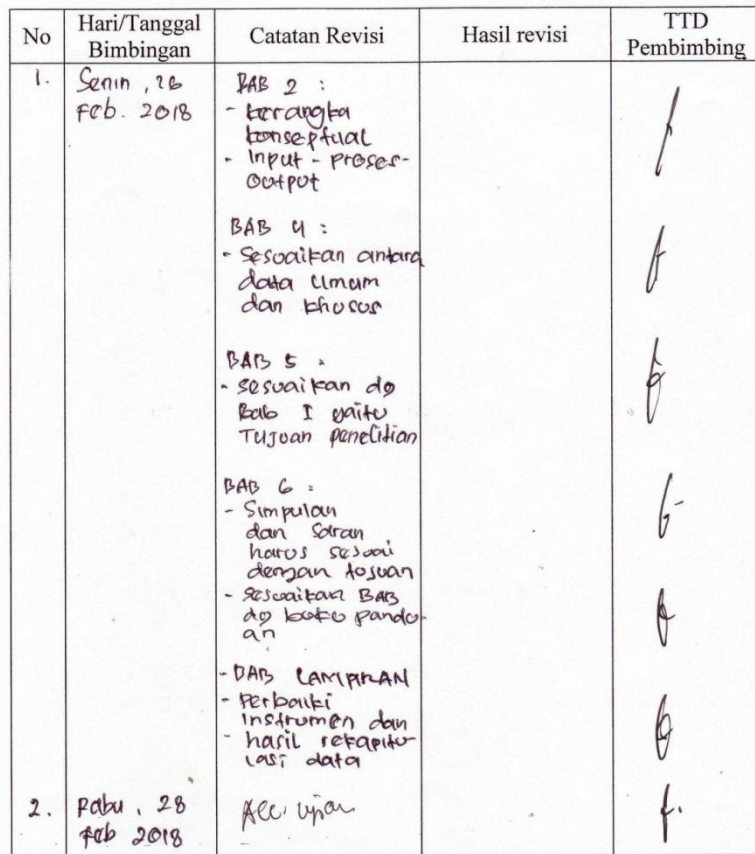 No Hari/Tanggal Bimbingan Catatan Revisi Hasil revisi TTD Pembimbing
1. Senin, 26 Feb. 2018
BAB 2 :
- Kerangka
konseptual
- Input - Proses -
Output
BAB 4 :
- Sesuaikan antara
data Umum
dan khusus
BAB 5 :
- sesuaikan dg
Bab I yaitu
Tujuan penelitian
BAB 6 :
- Simpulan
dan Saran
harus sesuai
dengan tujuan
- sesuaikan BAB
dg buku pandu-
an
- BAB LAMPIRAN
- Perbaiki
instrumen dan
- hasil rekapitu-
lasi data
2. Rabu, 28 Feb 2018
Acc. ujian